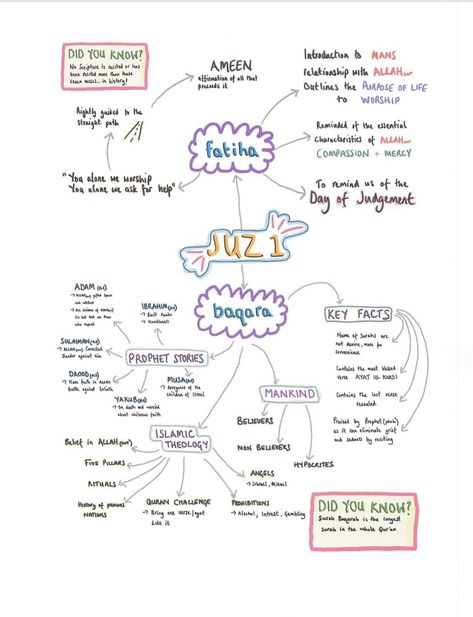 DID YOU KNOW?
No Scripture is recited or has
been recited more than these
seven verses... in history!
AMEEN
affirmation of all that
preceeds it
Introduction to MANS
relationship with ALLAH
Outlines the PURPOSE OF LIFE
to WORSHIP
Rightly guided to the
straight path
fatiha
Reminded of the essential
Characteristics of ALLAH
COMPASSION + MERCY
"You alone we worship
You alone we ask for help"
To remind us of the
Day of Judgement
JUZ 1
baqara
ADAM (as)
IBRAHIM (as)
→ Built Kaaba
SULAIMAN (as)
→ ALLAH corrected
Slander against him
DAOOD (as)
→ Firm faith in ALLAH
Battle against Goliath
PROPHET STORIES
YAKUB (as)
→ On death bed worried
about childrens faith
MUSA (as)
→ Arrogance of the
children of Israel
KEY FACTS
Name of Surahs are
not divine, more for
convenience
Contains the most blessed
verse AYAT UL KURSI
Contains the last verse
revealed
Praised by Prophet (pbuh)
as it can eliminate grief
and sadness by reciting
MANKIND
BELIEVERS
NON BELIEVERS
HYPOCRITES
ISLAMIC
THEOLOGY
Belief in ALLAH
FIVE PILLARS
RITUALS
History of previous
NATIONS
QURAN CHALLENGE
→ Bring one verse/ayat
like it
PROHIBITIONS
→ Alcohol, Intrest, Gambling
ANGELS
→ Jibreel, Mikael
DID YOU KNOW?
Surah Baqarah is the longest
Surah in the whole Qur'an